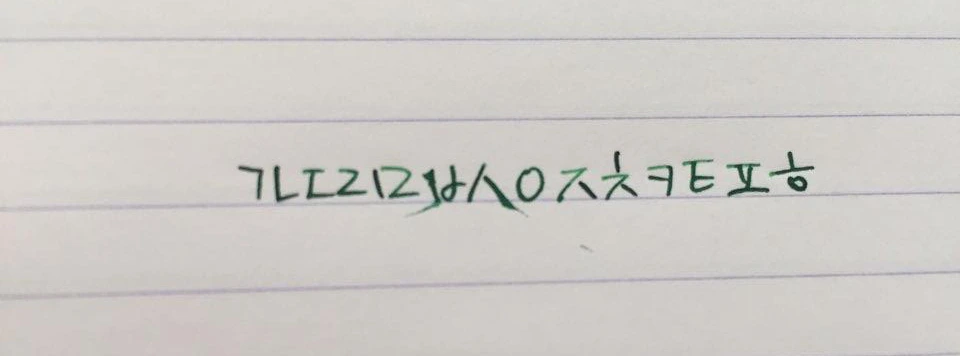 ㄱㄴㄷㄹㅁㅂㅅㅇㅈㅊㅋㅌㅍㅎ